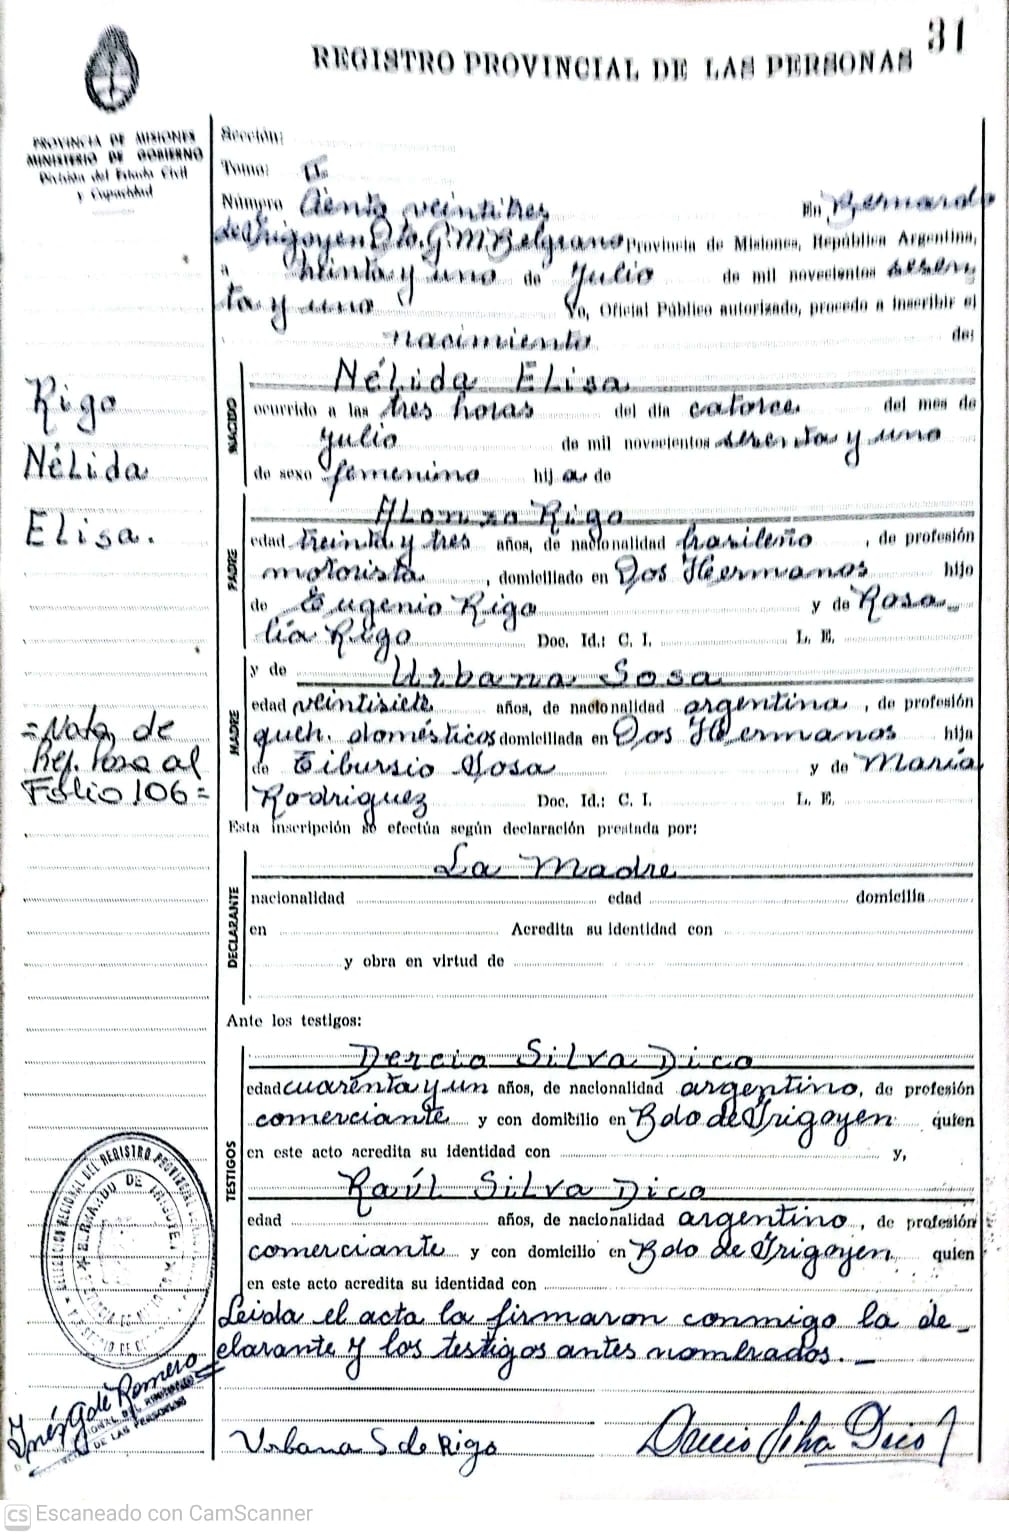 31
REGISTRO PROVINCIAL DE LAS PERSONAS
PROVINCIA DE MISIONES
MINISTERIO DE GOBIERNO
División del Estado Civil
y Capacidad
Sección:
Tomo: II
Número Ciento veintitres En Bernardo
de Irigoyen Dto. G. M. Belgrano Provincia de Misiones, República Argentina,
a treinta y uno de Julio de mil novecientos sesen
ta y uno Yo, Oficial Público autorizado, procedo a inscribir el
nacimiento de:
Rigo
Nélida
Elisa.
NACIDO
Nélida Elisa
ocurrido a las tres horas del día catorce del mes de
Julio de mil novecientos sesenta y uno
de sexo femenino hij a de
PADRE
Alonzo Rigo
edad treinta y tres años, de nacionalidad brasileño, de profesión
motorista, domiciliado en Dos Hermanos hijo
de Eugenio Rigo y de Rosa
lia Rigo Doc. Id.: C. I. L. E.
MADRE
y de Urbana Sosa
edad veintisiete años, de nacionalidad argentina, de profesión
queh. domésticos domiciliada en Dos Hermanos hija
de Tibursio Sosa y de María
Rodriguez Doc. Id.: C. I. L. E.
=Nota de
Ref. Pasa al
Folio 106=
Esta inscripción se efectúa según declaración prestada por:
DECLARANTE
La Madre
nacionalidad edad domicilia
en Acredita su identidad con
y obra en virtud de
Ante los testigos:
TESTIGOS
Dercio Silva Dico
edad cuarenta y un años, de nacionalidad argentino, de profesión
comerciante y con domicilio en Bdo de Irigoyen quien
en este acto acredita su identidad con y,
Raúl Silva Dico
edad años, de nacionalidad argentino, de profesión
comerciante y con domicilio en Bdo de Irigoyen quien
en este acto acredita su identidad con
Leida el acta la firmaron conmigo la de_
clarante y los testigos antes nombrados._
DEL REGISTRO PROVINCIAL
BERNARDO DE IRIGOYEN
Inés G de Romero
DE LAS PERSONAS
Urbana S de Rigo
Dercio Silva Dico
CS Escaneado con CamScanner